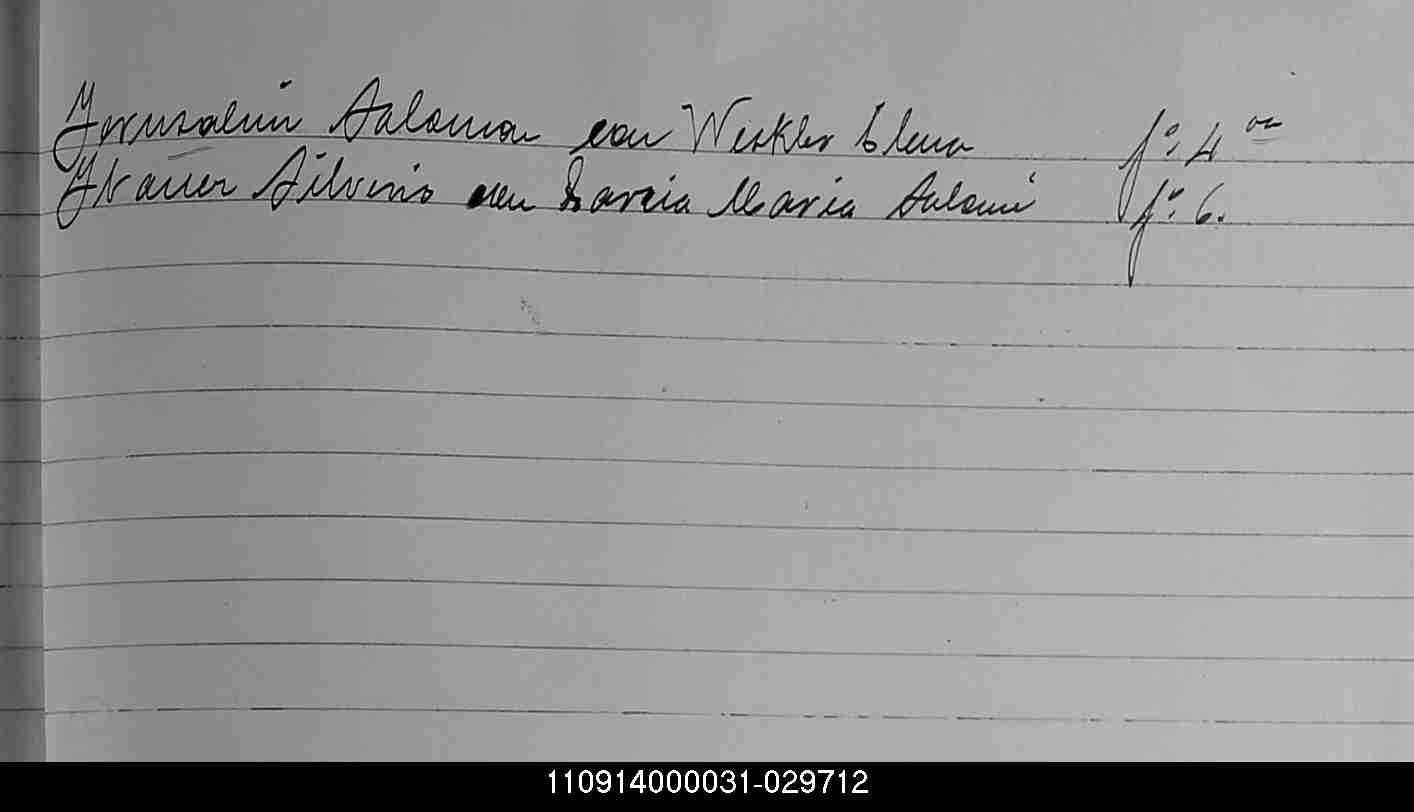 Jerusalem Salomon con Weskler Elena fº 4 va
Silverio con Garcia Maria Salomé fº 6.
110914000031-029712